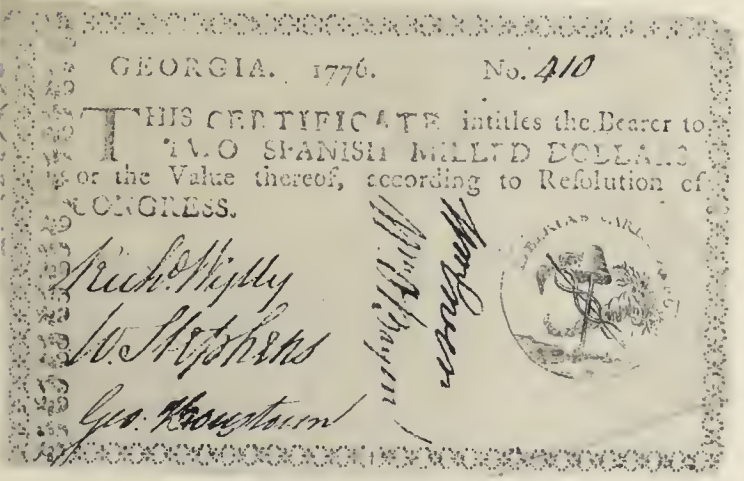 GEORGIA. 1776. No. 410
THIS CERTIFICATE intitles the Bearer to
TWO SPANISH MILLED DOLLARS
or the Value thereof, according to Reſolution of
CONGRESS.
Richd. Wylly
W. Stephens
Geo. Houstoun
LIBERTAS